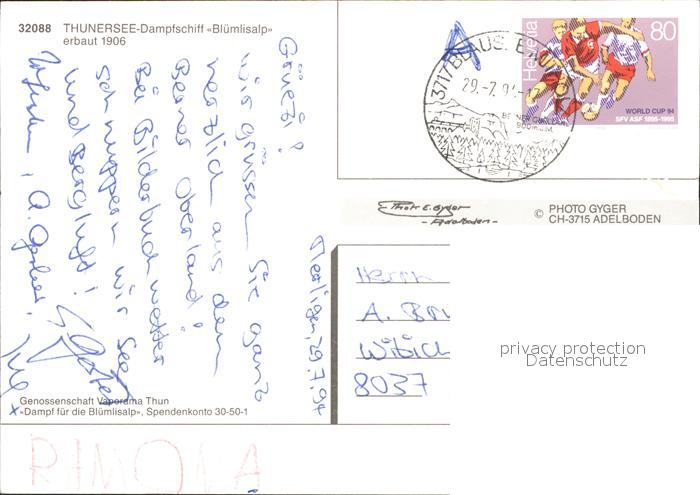 32088 THUNERSEE-Dampfschiff «Blümlisalp»
erbaut 1906
Merligen, 29.7.94
Grüezi!
Wir grüssen Sie ganz
herzlich aus dem
Berner Oberland!
Bei Bilderbuchwetter
schnuppern wir See-
und Bergluft!
Genossenschaft Vaporama Thun
«Dampf für die Blümlisalp», Spendenkonto 30-50-1
A
3717 BLAUSEE
29.-7.94
Helvetia
80
WORLD CUP 94
SFV ASF 1895-1995
Photo E. Gyger
- Adelboden -
© PHOTO GYGER
CH-3715 ADELBODEN
Herrn
A.
8037
privacy protection
Datenschutz
RIMOMA